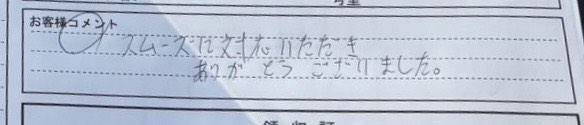 お客様コメント
スムーズに対応いただき
ありがとうございました。
領収証